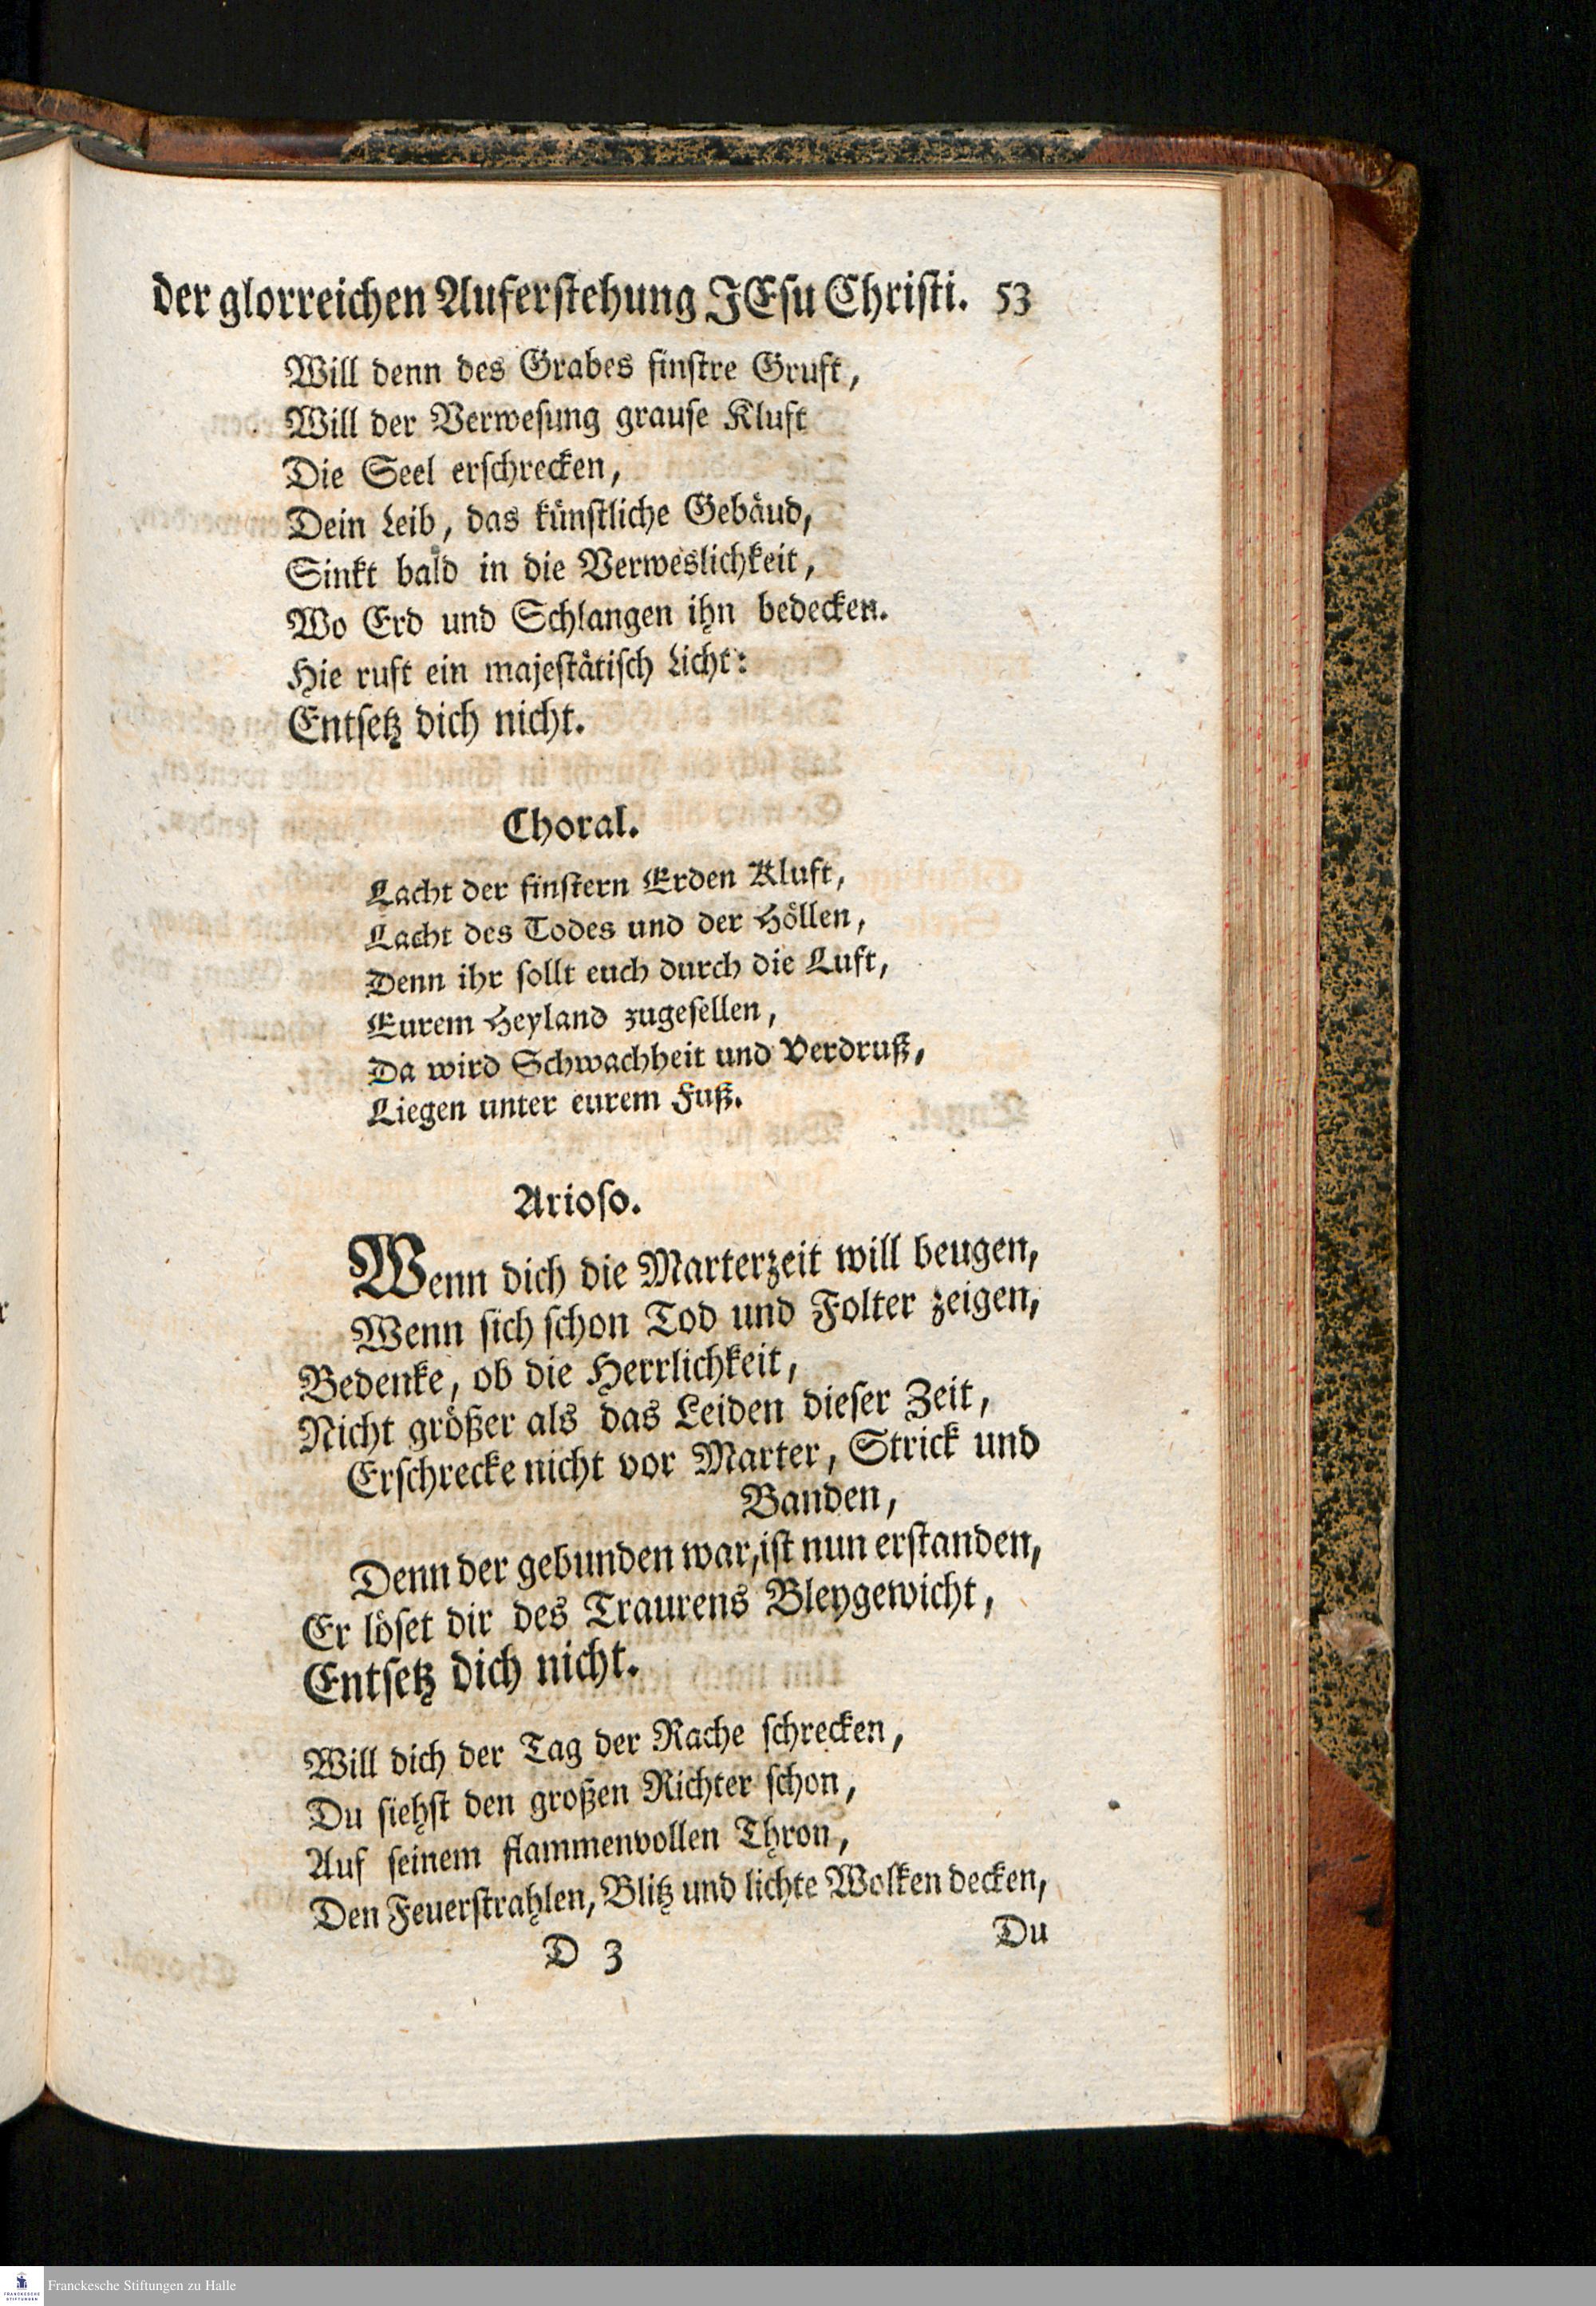 der glorreichen Auferstehung JEsu Christi. 53
Will denn des Grabes finstre Gruft,
Will der Verwesung grause Kluft
Die Seel erschrecken,
Dein Leib, das künstliche Gebäud,
Sinkt bald in die Verweslichkeit,
Wo Erd und Schlangen ihn bedecken.
Hie ruft ein majestätisch Licht:
Entsetz dich nicht.
Choral.
Lacht der finstern Erden Kluft,
Lacht des Todes und der Höllen,
Denn ihr sollt euch durch die Luft,
Eurem Heyland zugesellen,
Da wird Schwachheit und Verdruß,
Liegen unter eurem Fuß.
Arioso.
Wenn dich die Marterzeit will beugen,
Wenn sich schon Tod und Folter zeigen,
Bedenke, ob die Herrlichkeit,
Nicht größer als das Leiden dieser Zeit,
Erschrecke nicht vor Marter, Strick und
Banden,
Denn der gebunden war, ist nun erstanden,
Er löset dir des Traurens Bleygewicht,
Entsetz dich nicht.
Will dich der Tag der Rache schrecken,
Du siehst den großen Richter schon,
Auf seinem flammenvollen Thron,
Den Feuerstrahlen, Blitz und lichte Wolken decken,
D 3 Du
Franckesche Stiftungen zu Halle